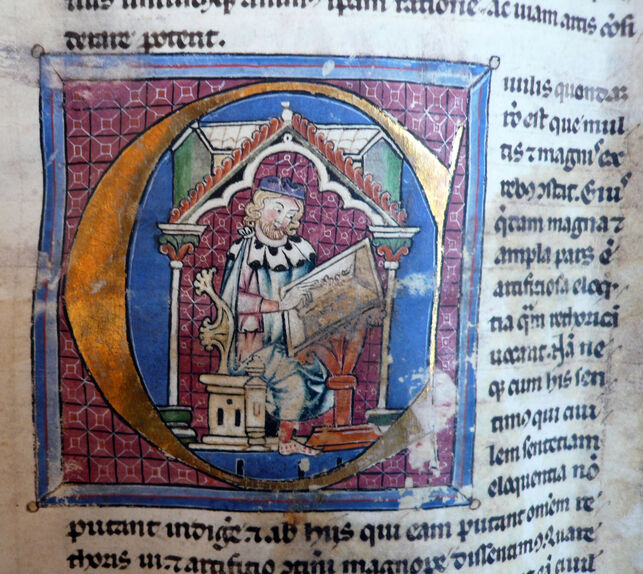 ipam ratione ac uiam artis c̄osi
derare potent.
C
iuilis quandaz
ro est que mul
tis ⁊ magnis ex
rebꝫ ↄstat. Eiuꝰ
q̄dam magna ⁊
ampla pars ē
artificiosa eloq̄
tia q̄m rethorici
uocant. Nā ne
qꝫ cum his sen
timꝰ qui ciui
lem sentetiam
eloquentia nō
putant indige ⁊ ab hijs qui eam putant om̄em re
thoris ui ⁊ artificio ↄtini magnope dissentimꝰ. Quare